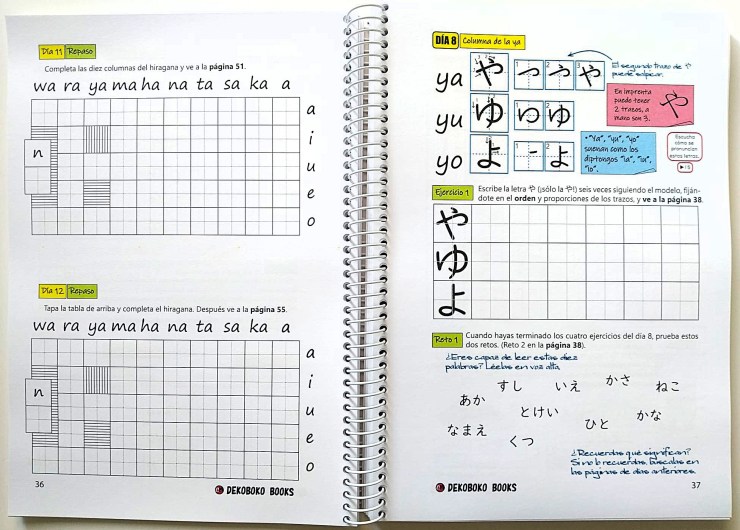 Día 11 Repaso
Completa las diez columnas del hiragana y ve a la página 51.
wa ra ya ma ha na ta sa ka a
a
i
n
u
e
o
Día 12 Repaso
Tapa la tabla de arriba y completa el hiragana. Después ve a la página 55.
wa ra ya ma ha na ta sa ka a
a
i
n
u
e
o
36
DEKOBOKO BOOKS
DÍA 8 Columna de la ya
El segundo trazo de や
puede salpicar.
ya や 1 2 3 や
En imprenta
puede tener
2 trazos, a
mano son 3.
や
yu ゆ 1 2 ゆ
yo よ 1 2 よ
•"Ya", "yu", "yo"
suenan como los
diptongos "ia", "iu",
"io".
Escucha
cómo se
pronuncian
estas letras.
▶15
Ejercicio 1 Escribe la letra や (¡sólo la や!) seis veces siguiendo el modelo, fiján-
dote en el orden y proporciones de los trazos, y ve a la página 38.
や
ゆ
よ
Reto 1 Cuando hayas terminado los cuatro ejercicios del día 8, prueba estos
dos retos. (Reto 2 en la página 38).
¿Eres capaz de leer estas diez
palabras? Léelas en voz alta.
すし いえ かさ ねこ
あか とけい かな
なまえ くつ ひと
¿Recuerdas qué significan?
Si no lo recuerdas, búscalas en
las páginas de días anteriores.
DEKOBOKO BOOKS
37